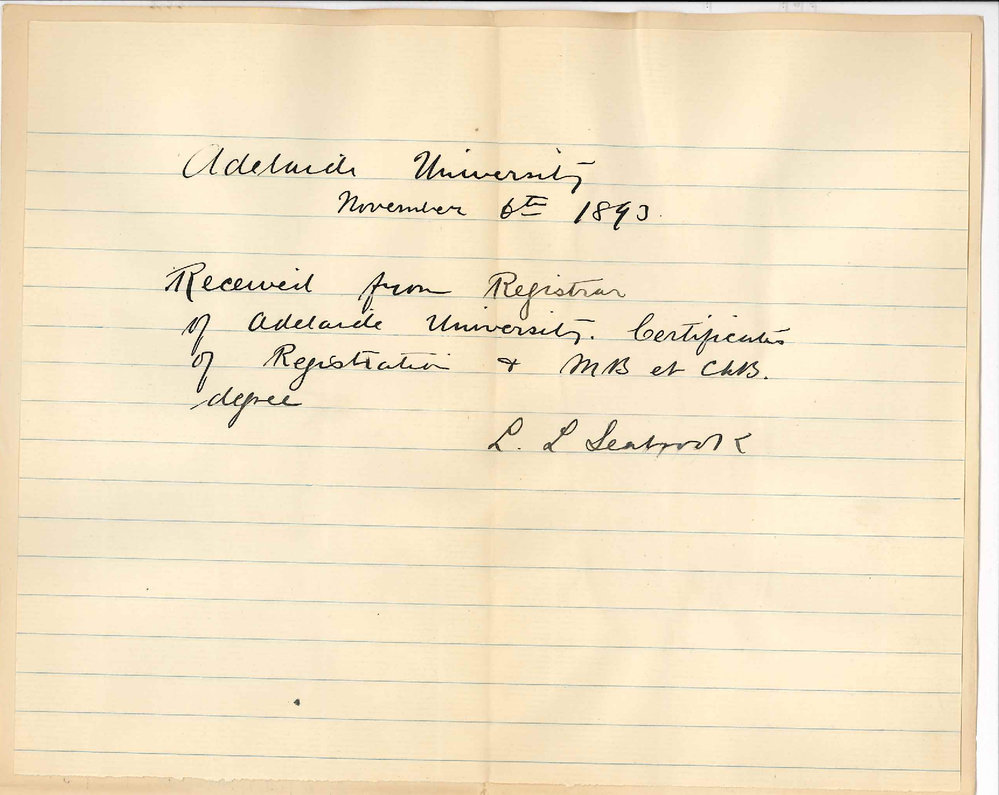 Adelaide University
November 6th 1893.
Received from Registrar
of Adelaide University. Certificates
of Registration & MB et ChB.
degree
L. L Seabrook